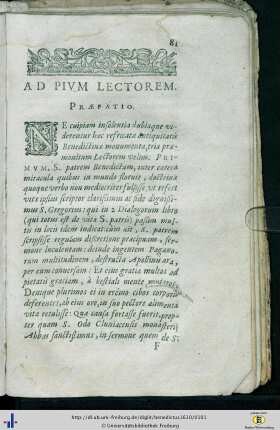 81
AD PIVM LECTOREM.
PRÆFATIO.
NE cuipiam insolentia dubiaque vi-
derentur hæc refricatæ antiquitatis
Benedictinæ monumenta, tria præ-
monitum Lectorem velim. PRI-
MVM, S. patrem Benedictum, inter cetera
miracula quibus in mundo floruit, doctrinæ
quoque verbo non mediocriter fulsisse vt refert
vitæ ipsius scriptor clarissimus ac fide dignissi-
mus S. Gregorius; qui in 2 Dialogorum libro
(qui totus est de vita S. patris) passim mul-
tis in locis idem indicatum ait, S. patrem
scripsisse regulam discretione præcipuam, ser-
mone luculentam; deinde ingentem Pagano-
rum multitudinem, destructa Apollinis ara,
per eum conversam. Et eius gratia multos ad
pietatis gratiam, à bestiali mente
Denique plurimos ei in eremo cibos corporis
deferentes, ab eius ore, in suo pectore alimenta
vitæ retulisse: Qua causa fortasse fuerit, prop-
ter quam S. Odo Cluniacensis monasterij
Abbas sanctissimus, in sermone quem de S.
F
http://dl.ub.uni-freiburg.de/diglit/benedictus1610/0101
© Universitätsbibliothek Freiburg